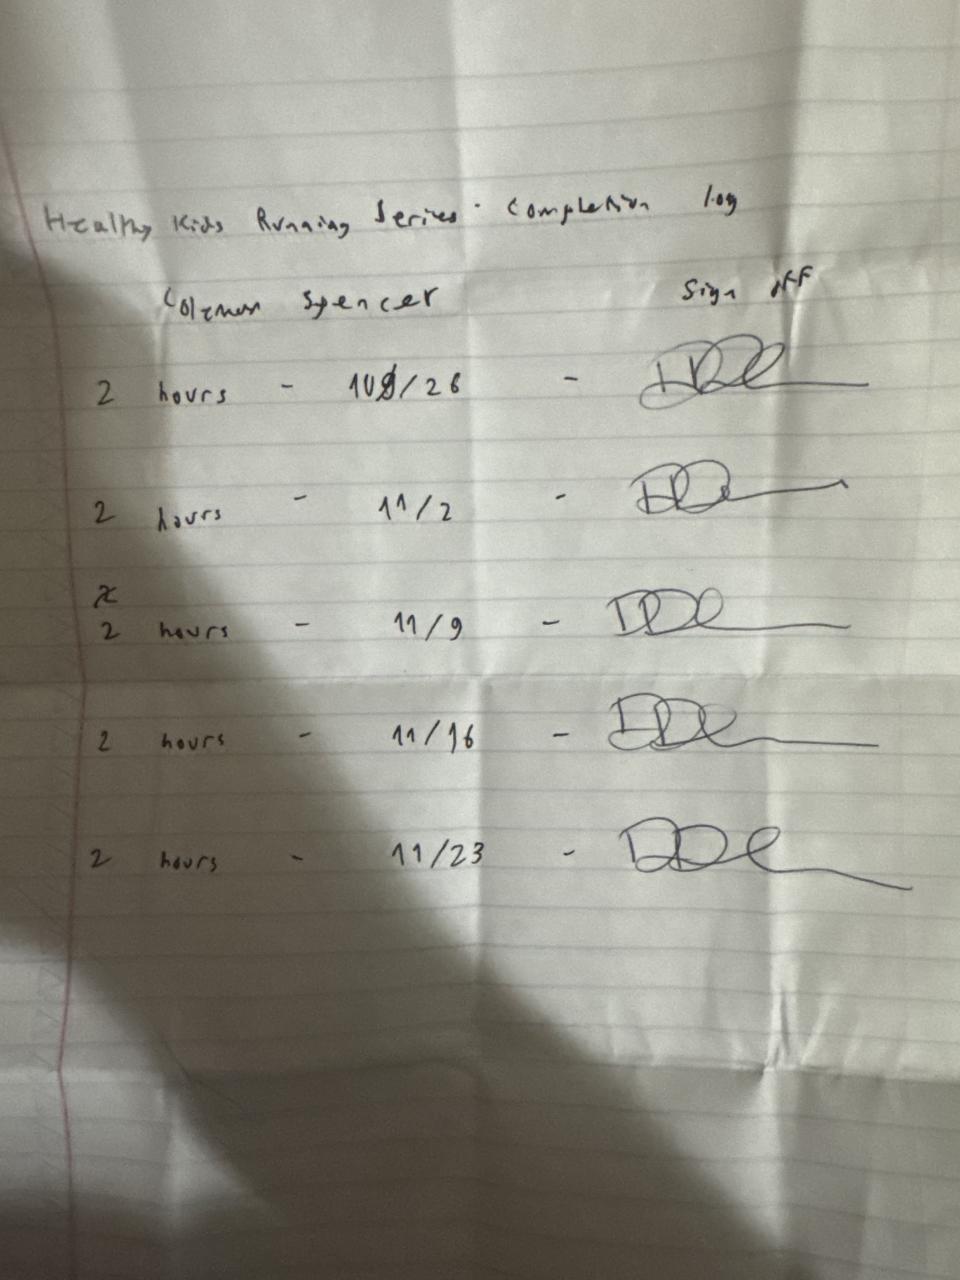 Healthy Kids Running Series - Completion log
Coleman Spencer Sign off
2 hours - 10/26 -
2 hours - 11/2 -
2 hours - 11/9 -
2 hours - 11/16 -
2 hours - 11/23 -